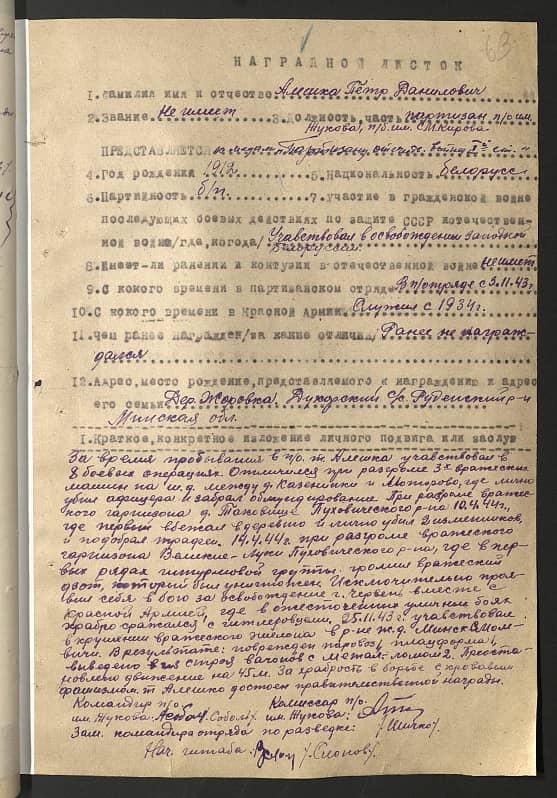 63.
НАГРАДНОЙ ЛИСТОК
1.Фамилия имя и отчество Алешка Пётр Данилович
2.Звание. Не имеет 3.Должность, часть партизан п/о им.
Жукова, п/б. им. С.М.Кирова
ПРЕДСТАВЛЯЕТСЯ к медали "Партизану отеч. войны II й ст."
4.Год рождения 1912г. 5.Национальность Белорусс
6.Партийность б/п. 7.участие в гражданской войне
последующих боевых действиях по защите СССР и отечествен-
ной войне/где,когода/ Учавствовал в освобождении Западной
Белоруссии.
8.Имеет-ли ранении и контузии в отечественной войне Не имеет
9.С кокого времени в партизанском отряде В п/отряде с 3.11.43г.
10.С кокого времени в Красной Армии. Служил с 1934г.
11.Чем ранее награжден/за какие отличия/ Ранее не награж-
дался
12.Адрес,место рождение,представляемого к награждению и адрес
его семьи Дер. Жоровка. Дукорский с/с. Руденский р-н
Минская обл.
1.Краткое,конкретное изложение личного подвига или заслуг
За время пробывания в п/о. т. Алешка учавствовал в
8 боевых операциях. Отличился при разгроме 3х вражеских
машин на ж.д. между д. и где лично
убил офицера и забрал обмундирование. При разгроме вражес-
кого гарнизона д. Пуховического р-на 10.4.44г.,
где первый вбежал в деревню и лично убил 2 изменников,
и подобрал трофеи. 14.4.44г. при разгроме вражеского
гарнизона Великие-Луки Пуховического р-на, где в пер-
вых рядах штурмовой группы громил вражеский
дзот, который был уничтожен. Исключительно проя-
вил себя в бою за освобождение г. Червень вместе с
Красной Армией, где в ожесточенных уличных боях
храбро сражался с гитлеровцами. 25.11.43г. учавствовал
в крушении вражеского эшелона в р-не ж.д. Минск-Осипо-
вичи. В результате: поврежден паровоз 1, платформа 1,
выведено из строя вагонов с метал. ломом 2. Приоста-
новлено движение на 45м. За храбрость в борьбе с кровавым
фашизмом т. Алешко достоен правительственной награды.
Командир п/о Комиссар п/о.
им. Жукова: /Соболь/. им. Жукова:
Зам. командира отряда по разведке: /Шичко/.
Нач. штаба: /Слонов/.